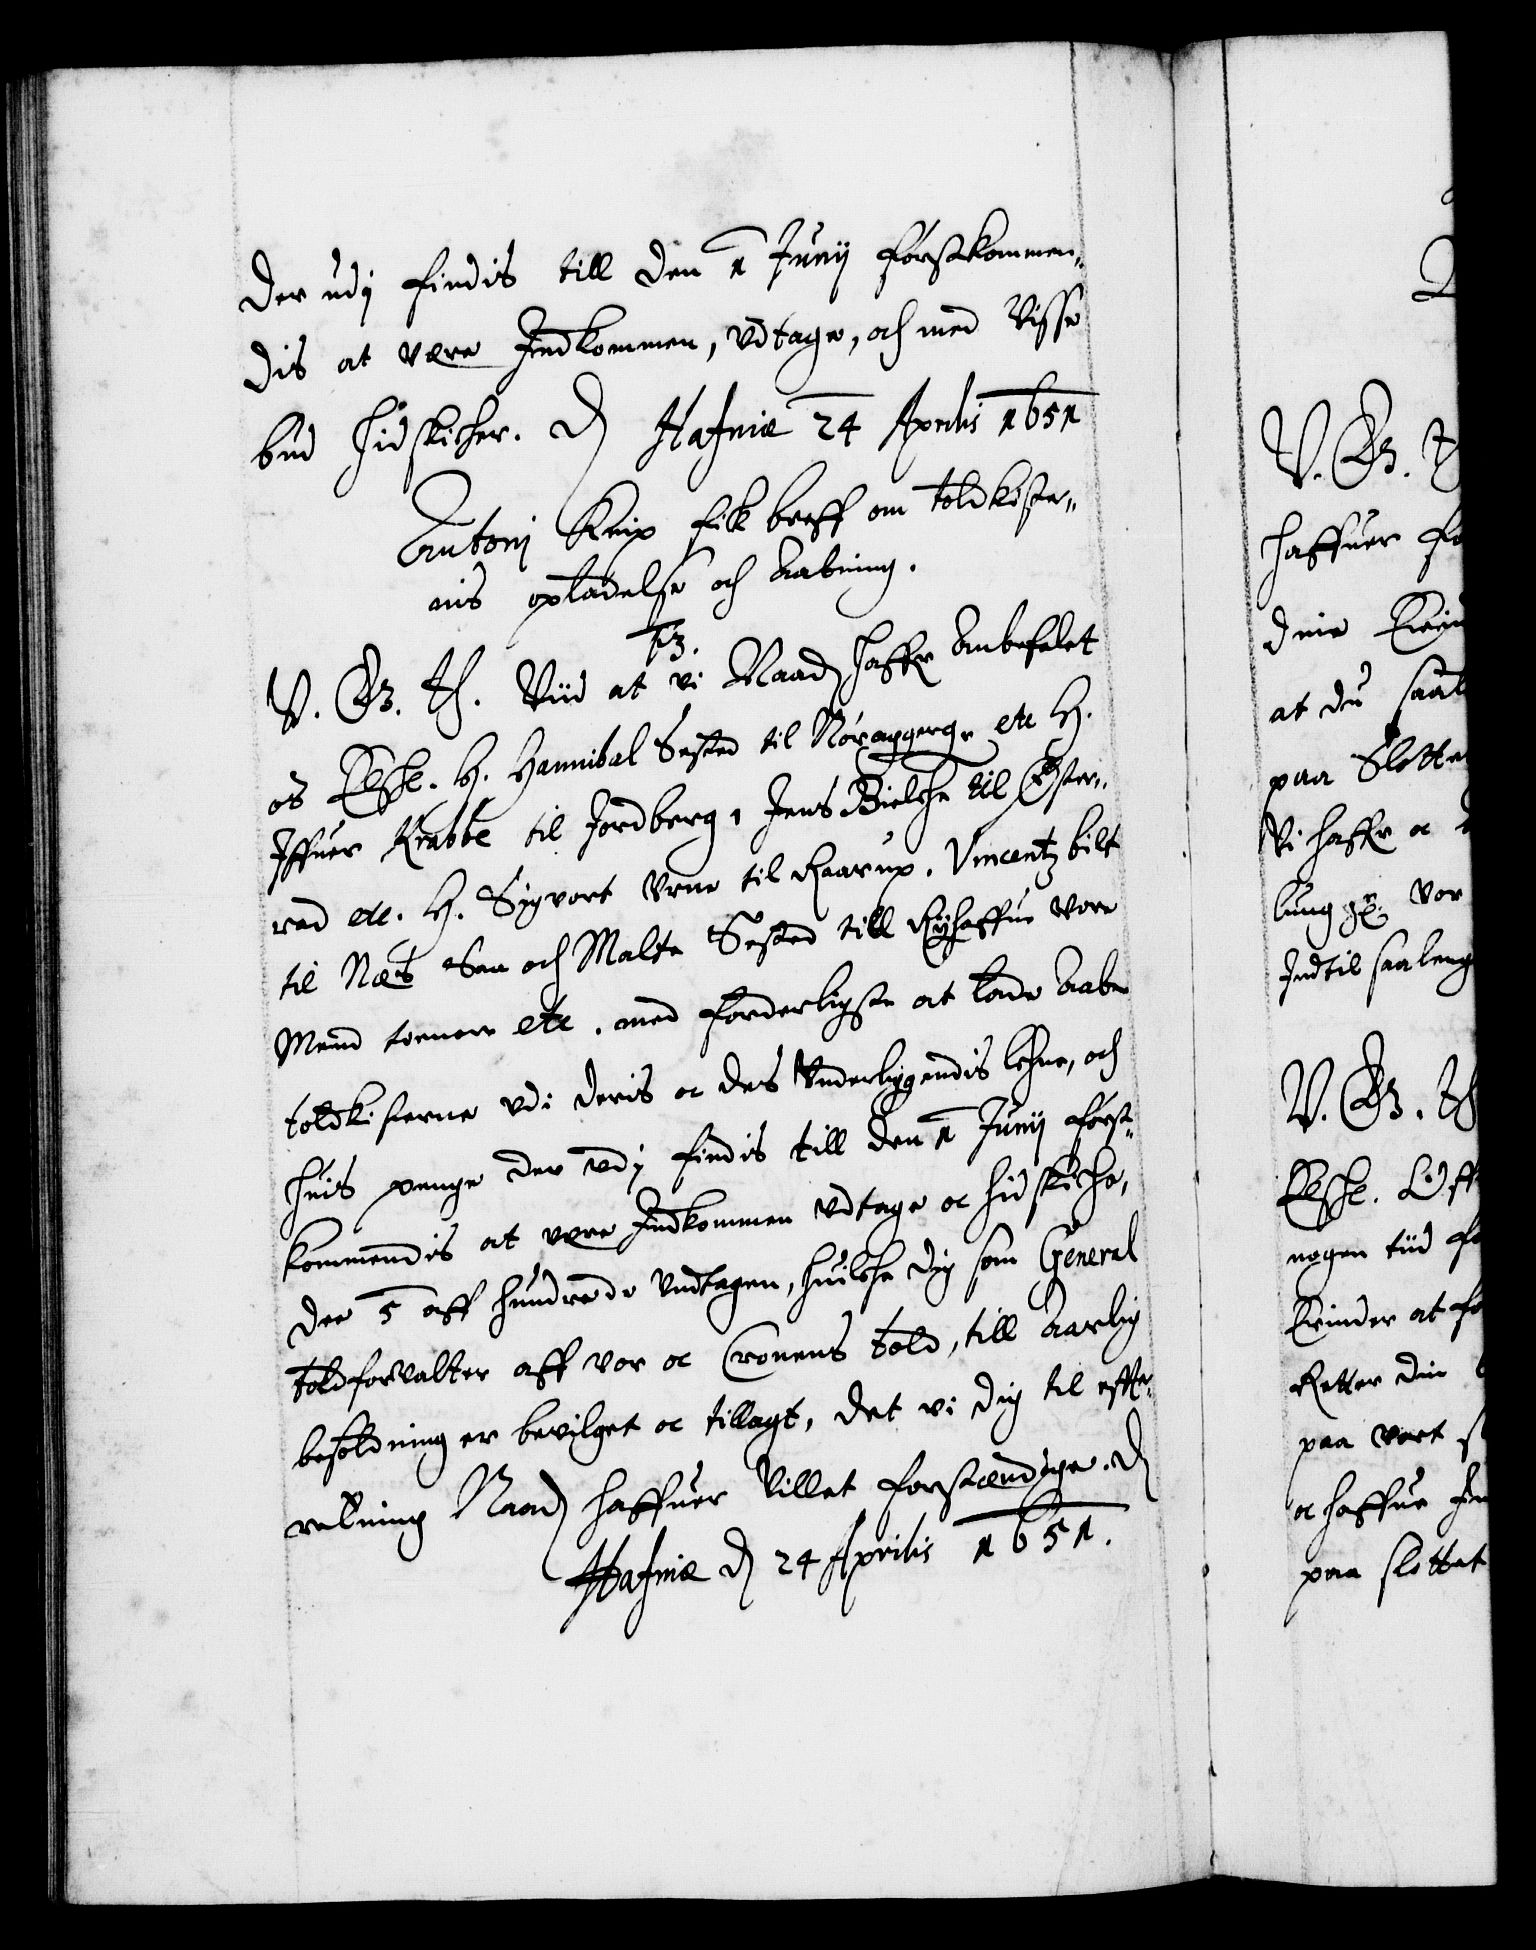 Der udj findis till den 1 Junij førstkommen,,
dis at være Indkommen, udtage, och med Visse
bud hidskicher. D Hafniæ 24 Aprilis 1651
Antonj Knip fik breff om toldkister,,
nis opladelse och Aabning.
V. G. T. Viid at vi Naad haffr Anbefalet
os Elsch. H. Hannibal Sested til Nøragger gr etc H.
Iffuer Krabbe til Jordberg, Jens Bielche til Øster,,
rad etc. H. Sigvort Vrne til Raarup. Vincentz bilt
til Næs Saa och Malte Sested till Ryhaffue vore
Mend toener etc. med forderligste at lade Aabe
toldkisterne udi deris oc des Underliggendis lehne, och
huis penge der udj findis till den 1 Junij først,,
kommendis at være Indkommen udtage oc hidskiche,
Der 5 aff hundrede undtagen, huilche dig som General
toldforvalter aff vor oc Cronens told, till Aarlig
besoldning er bevilget oc tillagt, det vi dig til effte,,
retning Naad haffuer Villet forstændige. D
Hafniæ D 24 Aprilis 1651.
V. G. T
haffuer fo
at du saal
paa Slotte
Vi haffr oc
vor
Indtil saaleng
V. G. T
Elsch.
nogen tiid fo
at fo
Retter din
paa vort sl
oc haffue
paa slottet